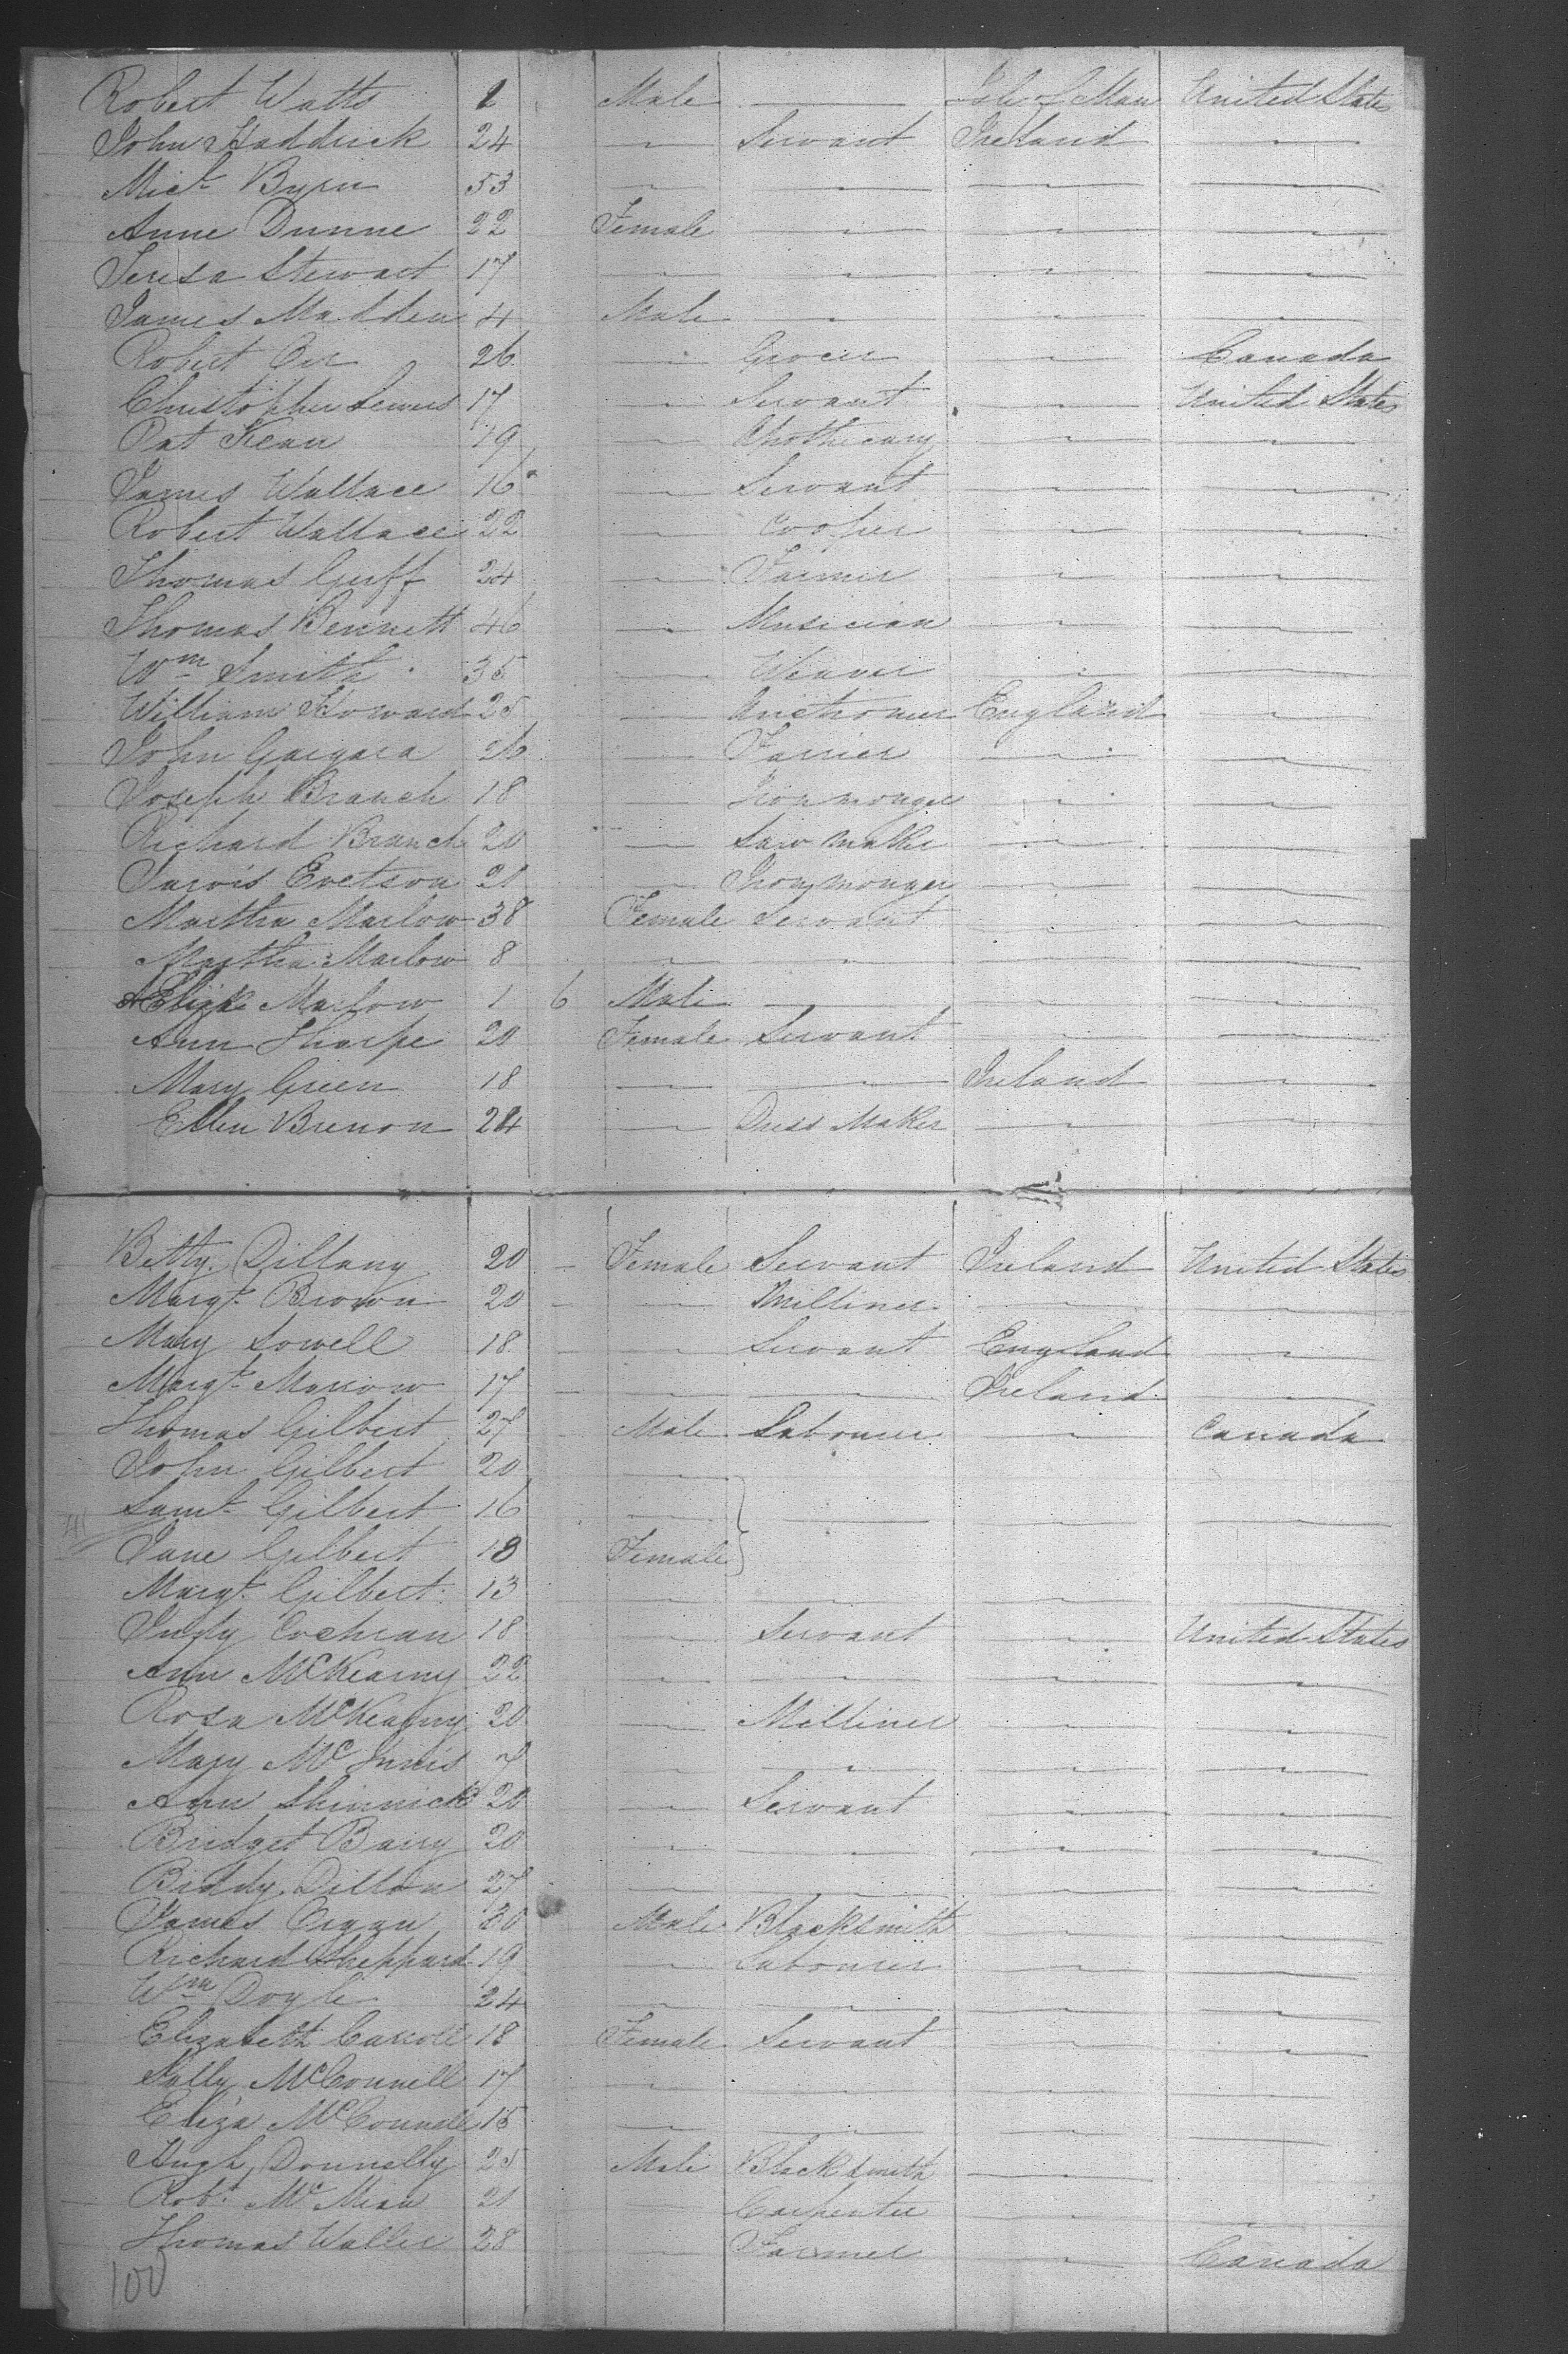 Robert Watts 1 Male — Isle of Man United States
John Haddrick 24 — Servant Ireland —
Micl Byrn 53 — — — —
Anne Dunne 22 Female — — —
Teresa Stewart 17 — — — —
James Madden 4 Male — — —
Robert Orr 26 — Grocer — Canada
Christopher 17 — Servant — United States
Pat Kean 19 — Apothecary — —
James Wallace 16 — Servant — —
Robert Wallace 22 — Cooper — —
Thomas Guff 24 — Farmer — —
Thomas Bennett 46 — Musician — —
Wm Smith 35 — Weaver — —
William Howard 25 — Auctioneer England —
John Gargara 26 — Farrier — —
Joseph Branch 18 — Iron monger — —
Richard Branch 20 — Saw Maker — —
Jarvis Evetson 21 — Iron monger — —
Martha Marlow 38 Female Servant — —
Martha Marlow 8 — — — —
Marlow 1 6 Male — — —
Ann Tharpe 20 Female Servant — —
Mary Green 18 — — Ireland —
Ellen Brenon 24 — Dress Maker — —
Betty Dillany 20 — Female Servant Ireland United States
Margt Brown 20 — — Milliner — —
Mary Sowell 18 — — Servant England —
Margt Morrow 17 — — — Ireland —
Thomas Gilbert 27 Male Labourer — Canada
John Gilbert 20 —
Saml Gilbert 16 — } — — —
Jane Gilbert 18 Female
Margt Gilbert 13 — — — —
Judy Cochran 18 — Servant — United States
Ann McKearny 22 — — — —
Rosa McKearny 20 — Milliner — —
Mary Mc Innis 7 — — — —
Ann Shinnick 20 — Servant — —
Bridget Barry 20 — — — —
Biddy Dillon 27 — — — —
James Egan 30 Male Blacksmith — —
Richard Sheppard 19 — Labourer — —
Wm Doyle 24 — — — —
Elizabeth Carroll 18 Female Servant — —
Sally McConnell 17 — — — —
Eliza McConnell 15 — — — —
Hugh Donnelly 25 Male Blacksmith —
Robt Mc Mian 21 Carpenter — —
Thomas Waller 28 — Farmer — Canada
100